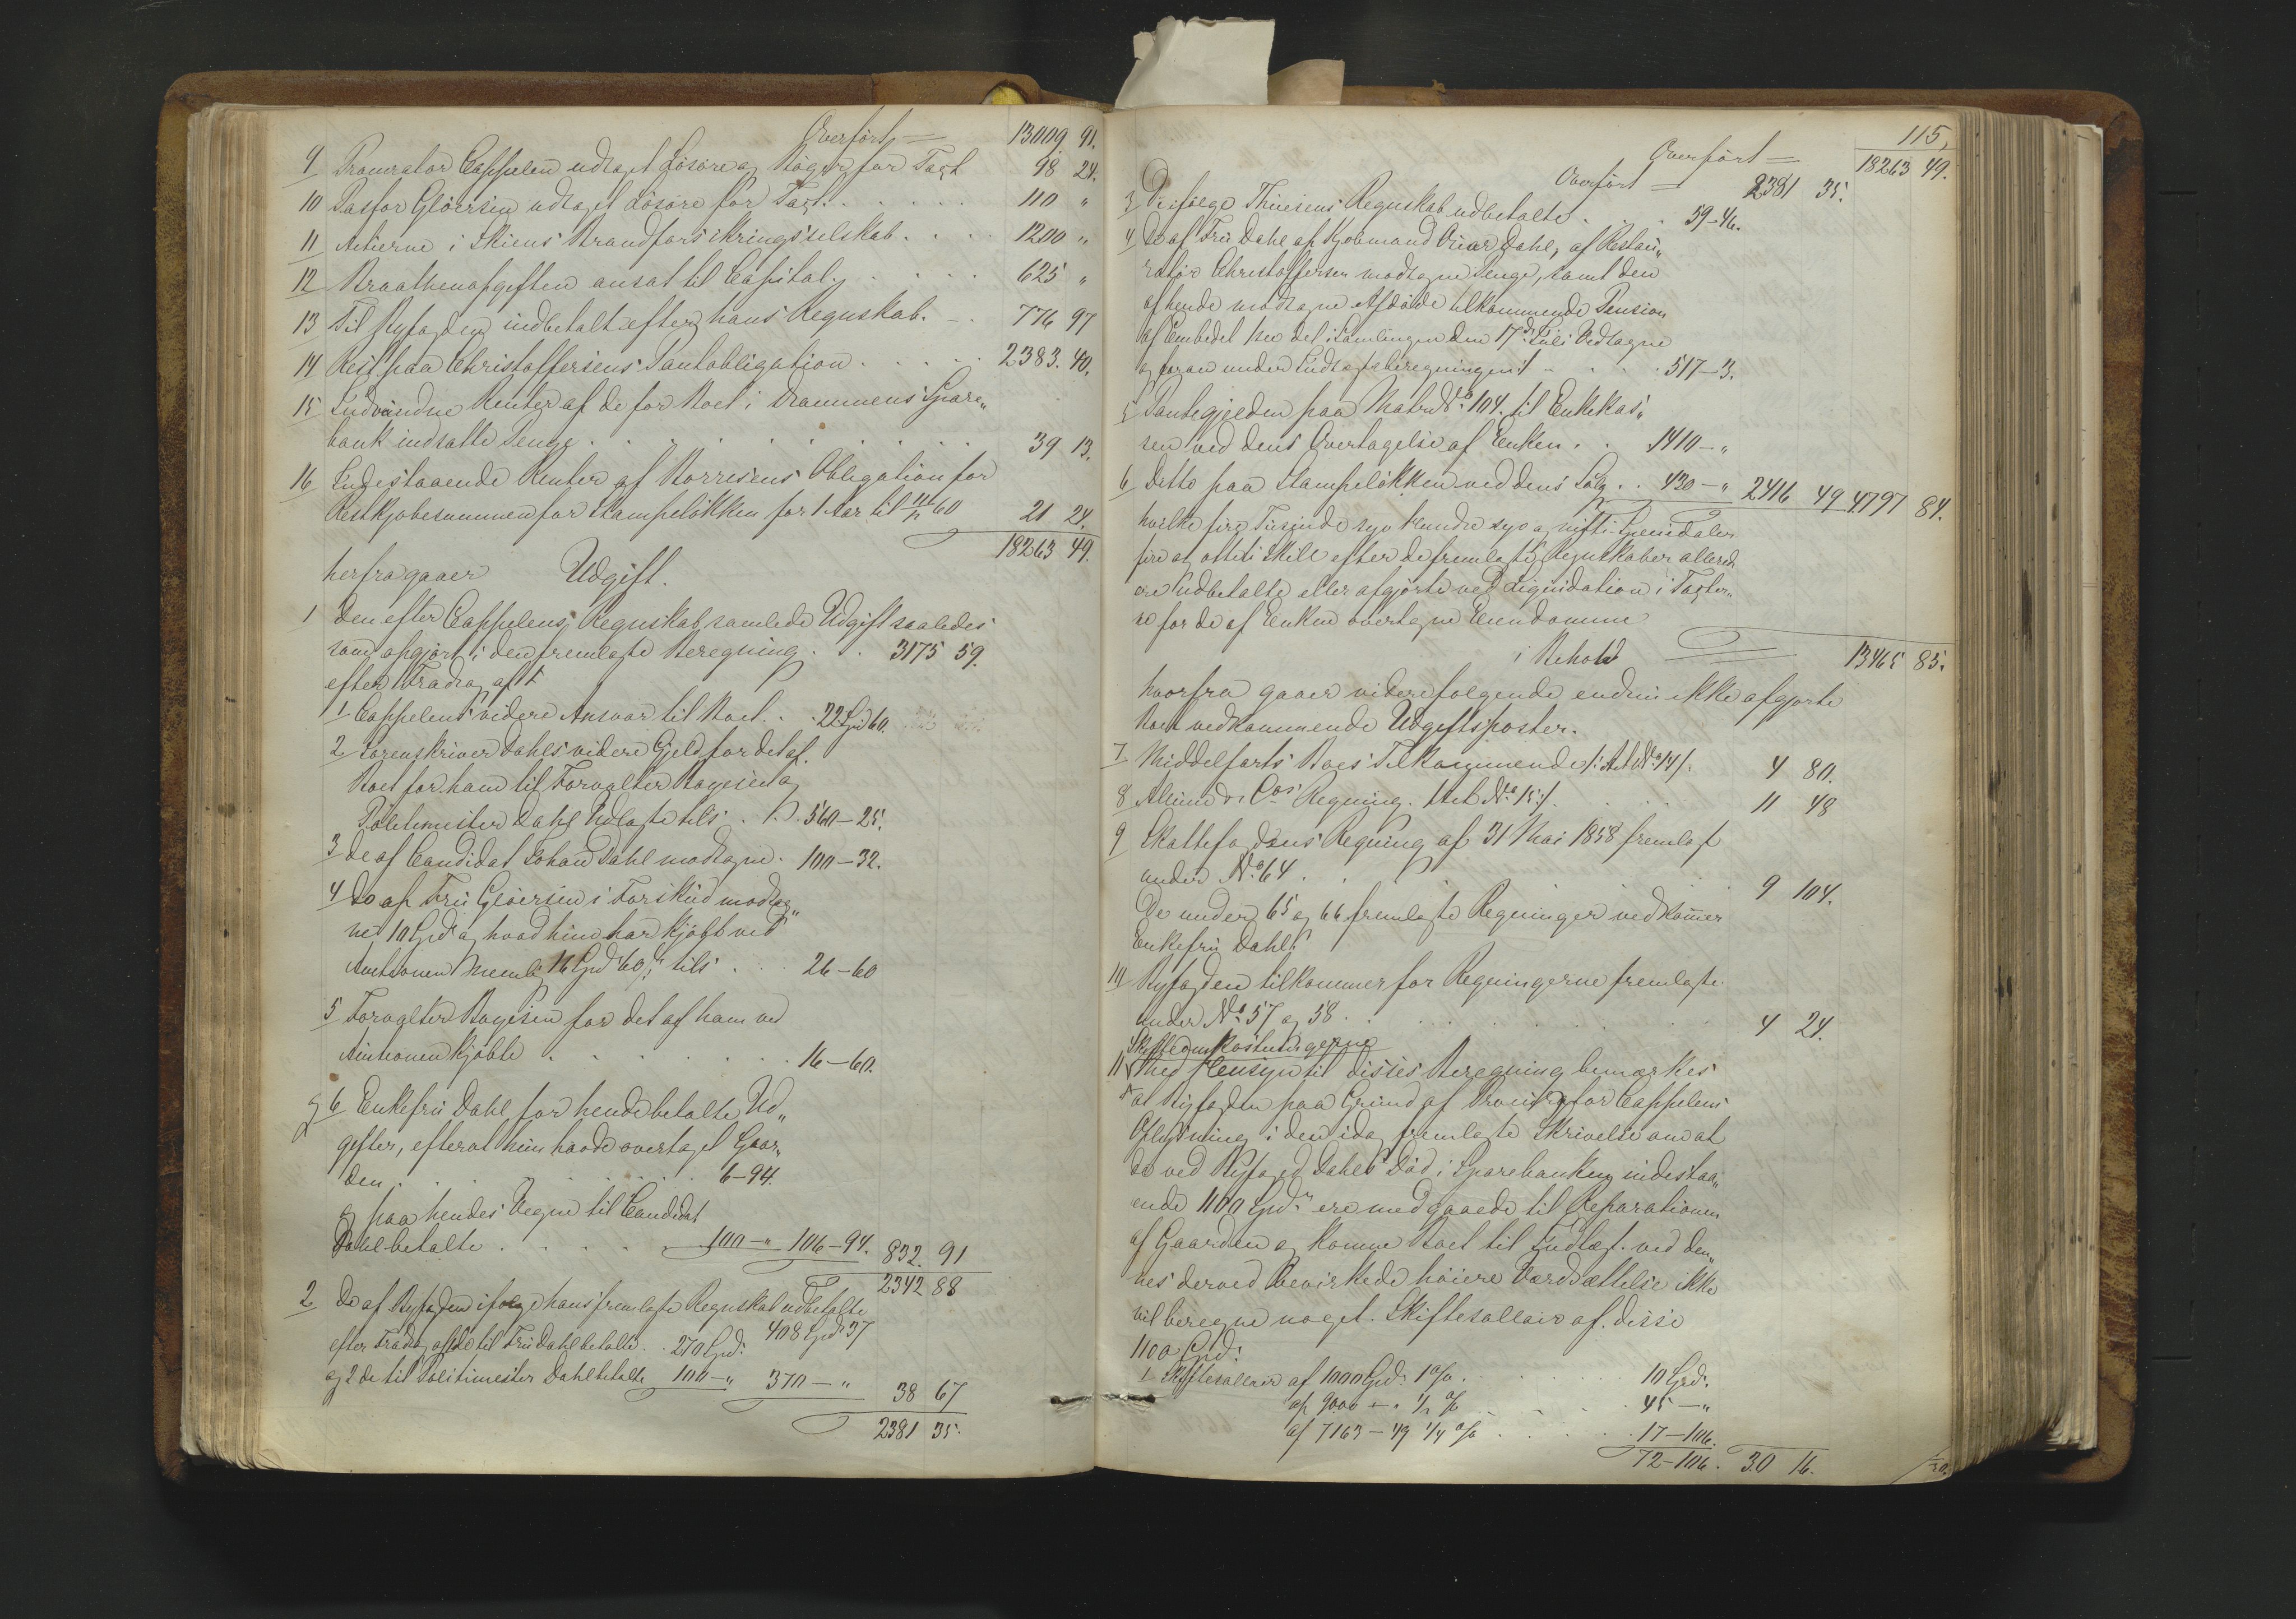 Overført = 13009 91.
9 Procurator Cappelen udtaget Løsøre og Bøger for Taxt 98 24.
10 Pastor Gløersen udtaget Løsøre for Taxt. . . . . . . 110 "
11 Actierne i Skiens Brandforsikringsselskab. . . . 1200 "
12 Braathenafgiften ansat til Capital. . . . . . 625 "
13 Til Byfogden indbetalt efter hans Regnskab. - . 776 97
14 Rest paa Christoffersens Pantobligation . . . . . 2383. 40.
15 Indvundne Renter af de for Boet i Drammens Spare„
bank indsatte Penge . . . . . . . . . . 39 13.
16 Indestaaende Renter af Borresens Obligation for
Restkjøbesummen for Stampeløkken for 1 Aar til 11/12 60 21 24.
18263 49.
herfra gaaer Udgift.
1 den efter Cappelens Regnskab samlede Udgift saaledes
som opgjort i den fremlagte Beregning . . 3175 59.
efter Fradrag af:
1 Cappelens videre Ansvar til Boet. . . 22 Spd 60.
2 Sorenskriver Dahls videre Gjeld for det af
Boet for ham til Forvalter Boyesen og
Politimester Dahl Udlagte tils . . . 560 — 25.
3 de af Candidat Johan Dahl modtagne. 100 — 32.
4 Do af Fru Gløersen i Forskud modtag„
ne 10 Spd og hvad hun har kjøbt ved
Auctionen nemlig 16 Spd 60 s tils . . . 26 — 60
5 Forvalter Boyesen for det af ham ved
Auctionen kjøbte . . . . . . . . 16 — 60.
og 6 Enkefru Dahl for hende betalte Ud„
gifter, efterat hun havde overtaget Gaar„
den . . . . . . . . . 6 — 94.
og paa hendes Vegne til Candidat
Dahl betalte . . . . . 100 — " 106 — 94. 832. 91
2342 88
2 De af Byfogden ifølge hans fremlagte Regnskab udbetalte
408 Spd 37
efter Fradrag af de til Fru Dahl betalte . . 270 Spd.
og 2 de til Politimester Dahl betalte 100 — " 370 — " 38 67
2381 35.
115,
Overført = 18263 49.
Overført = 2381 35.
3 De ifølge Thuesens Regnskab udbetalte . . . . 59 — 46.
4 De af Fru Dahl af Kjøbmand Einar Dahl, af Restau„
ratør Christoffersen modtagne Penge, samt den
af hende modtagne Afdøde tilkommende Pension
af Embedet see det i Samlingen den 17de Juli Vedtagne
og foran under Indtægtsberegningen: . . . . 517 — 3.
5 Pantegjelden paa Matr. No 104. til Enkekas„
sen ved dens Overtagelse af Enken . . . 1410 — "
6 Ditto paa Stampeløkken ved dens Salg . . 430 — " 2416 49 4797 84.
hvilke fire Tusinde syv hundre syv og nitti Speciedaler
fire og otteti Skill efter de fremlagte Regnskaber allerede
ere Udbetalte eller afgjorte ved Liquidation i Taxter„
ne for de af Enken overtagne Eiendomme
i Behold 13465 85.
hvorfra gaaer videre følgende endnu ikke afgjorte
Boet vedkommende Udgiftsposter.
7 Middelfarts Boes Tilkommende /: Act No 14/. 4 80.
8 Regning. Act No 15:/. . . . 11 48
9 Skattefogdens Regning af 31 Mai 1858 fremlagt
under No 64 . . . . . . 9 104.
De under 65 og 66 fremlagte Regninger vedkommer
Enkefru Dahl.
10 Byfogden tilkommer for Regningerne fremlagte
under No 57 og 58 . . . . . . . . 4 24.
Skifteomkostningerne
11 Med Hensyn til disses Beregning bemærkes
at Byfogden paa Grund af Procurator Cappelens
Oplysning i den idag fremlagte Skrivelse om at
de ved Byfoged Dahls Død i Sparebanken indestaa„
ende 1100 Spdr ere medgaaede til Reparationen
af Gaarden og komme Boet til Indtægt ved den„
nes derved bevirkede høiere Værdsættelse ikke
vil beregne noget Skiftesallair af disse
1100 Spd.
1 Skiftesallair af 1000 Spd. 1 o/o . . . . . 10 Spd.
af 9000 — " 1/2 % . . . . 45 — "
af 7163 — 49 1/4 o/o . . . . 17 — 106.
72 — 106. 30 16.